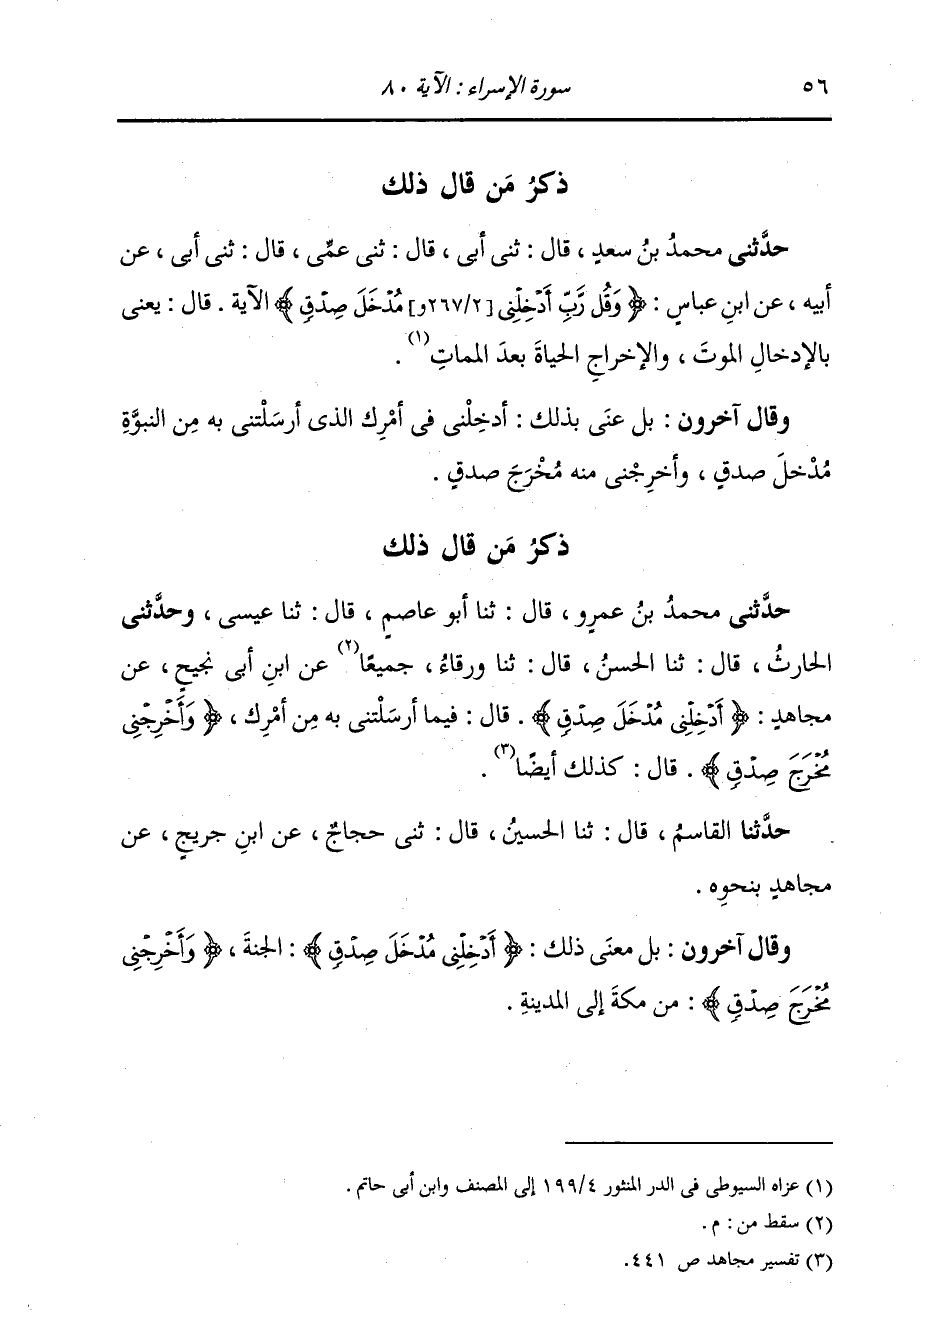 ٥٦ سورة الإسراء : الآية ٨٠
ذكرُ مَن قال ذلك
حدَّثنى محمدُ بنُ سعدٍ ، قال : ثنى أبى ، قال : ثنى عمِّى ، قال : ثنى أبى ، عن
أبيه ، عن ابنِ عباسٍ : ﴿ وَقُل رَّبِّ أَدْخِلْنِى [٢٦٧/٢و] مُدْخَلَ صِدْقٍ ﴾ الآية . قال : يعنى
بالإدخالِ الموتَ ، والإخراجِ الحياةَ بعدَ المماتِ(١) .
وقال آخرون : بل عنَى بذلك : أدخِلْنى فى أمْرِك الذى أرسَلْتنى به مِن النبوَّةِ
مُدْخلَ صدقٍ ، وأخرِجْنى منه مُخْرَجَ صدقٍ .
ذكرُ مَن قال ذلك
حدَّثنى محمدُ بنُ عمرٍو ، قال : ثنا أبو عاصمٍ ، قال : ثنا عيسى ، وحدَّثنى
الحارثُ ، قال : ثنا الحسنُ ، قال : ثنا ورقاءُ ، جميعًا(٢) عن ابنِ أبى نجيحٍ ، عن
مجاهدٍ : ﴿ أَدْخِلْنِى مُدْخَلَ صِدْقٍ ﴾ . قال : فيما أرسَلْتنى به مِن أمْرِك ، ﴿ وَأَخْرِجْنِى
مُخْرَجَ صِدْقٍ ﴾ . قال : كذلك أيضًا(٣) .
حدَّثنا القاسمُ ، قال : ثنا الحسينُ ، قال : ثنى حجاجٌ ، عن ابنِ جريجٍ ، عن
مجاهدٍ بنحوِه .
وقال آخرون : بل معنَى ذلك : ﴿ أَدْخِلْنِى مُدْخَلَ صِدْقٍ ﴾ : الجنةَ ، ﴿ وَأَخْرِجْنِى
مُخْرَجَ صِدْقٍ ﴾ : من مكةَ إلى المدينةِ .
(١) عزاه السيوطى فى الدر المنثور ١٩٩/٤ إلى المصنف وابن أبى حاتم .
(٢) سقط من : م .
(٣) تفسير مجاهد ص ٤٤١ .